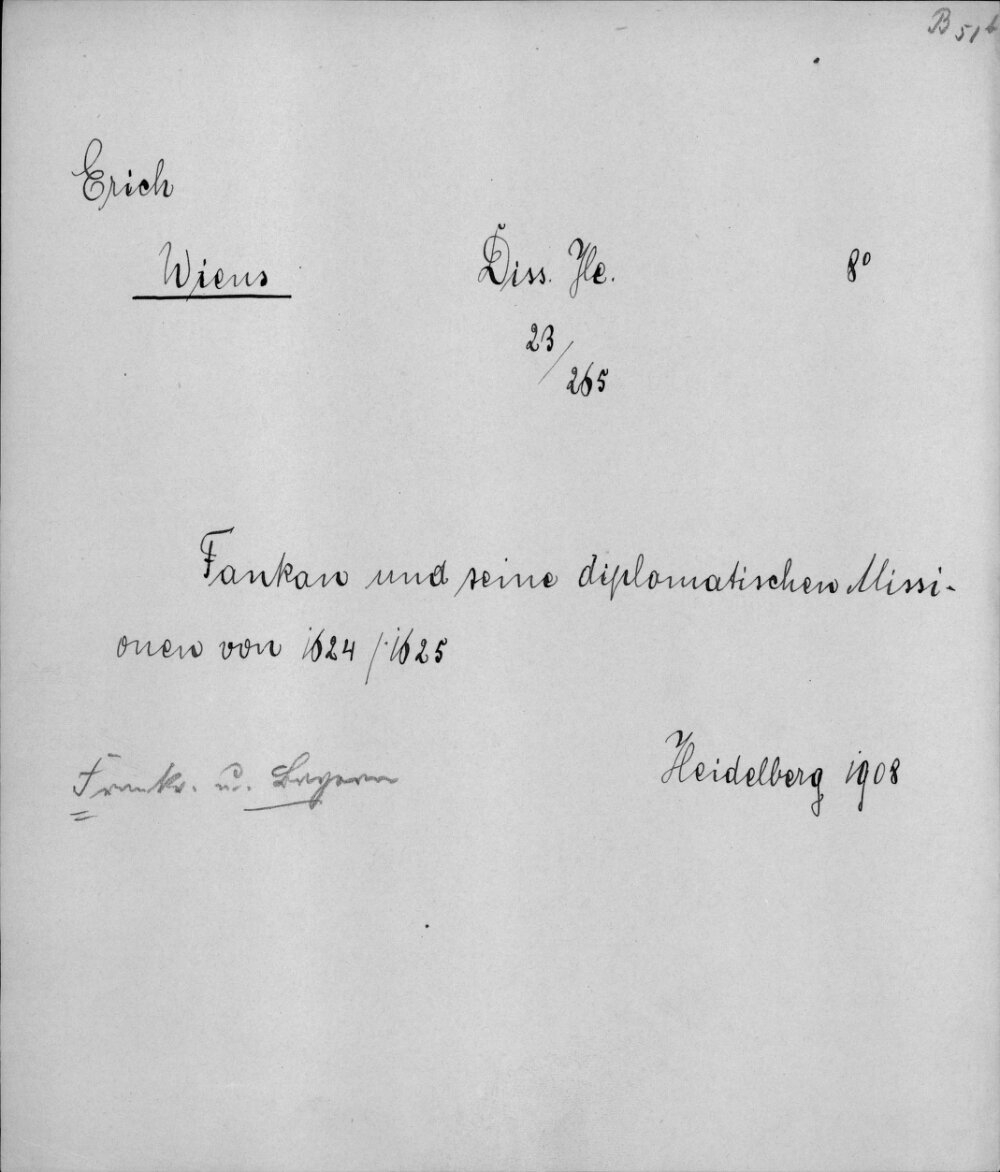 B 51 b
Erich
Wiens Diss. He. 8°
23/265
Fankan und seine diplomatischen Missi-
onen von 1624/1625
Heidelberg 1908
Frankr. u. Bayern